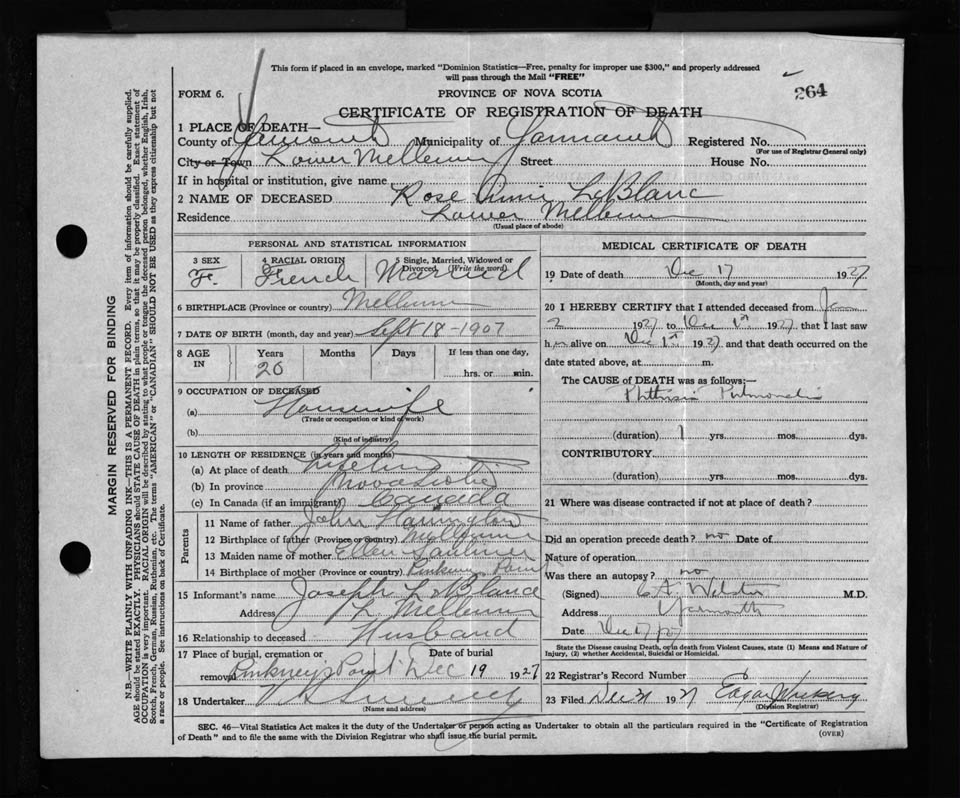 This form if placed in an envelope, marked "Dominion Statistics—Free, penalty for improper use $300," and properly addressed
will pass through the Mail "FREE"
FORM 6.
PROVINCE OF NOVA SCOTIA
264
CERTIFICATE OF REGISTRATION OF DEATH
1 PLACE OF DEATH—
County of Yarmouth Municipality of Yarmouth Registered No.
(For use of Registrar General only)
City or Town Lower Melbourne Street House No.
If in hospital or institution, give name
2 NAME OF DECEASED Rose Annie LeBlanc
Residence Lower Melbourne
(Usual place of abode)
PERSONAL AND STATISTICAL INFORMATION
3 SEX 4 RACIAL ORIGIN 5 Single, Married, Widowed or
Divorced (Write the word)
F. French Married
6 BIRTHPLACE (Province or country) Melbourne
7 DATE OF BIRTH (month, day and year) Sept 18-1907
8 AGE IN Years Months Days If less than one day,
20 hrs. or min.
9 OCCUPATION OF DECEASED
(a) Housewife
(Trade or occupation or kind of work)
(b)
(Kind of industry)
10 LENGTH OF RESIDENCE (in years and months)
(a) At place of death Lifetime
(b) In province Nova Scotia
(c) In Canada (if an immigrant) Canada
Parents
11 Name of father John
12 Birthplace of father (Province or country) Melbourne
13 Maiden name of mother Ellen Saulnier
14 Birthplace of mother (Province or country) Pinkney Point
15 Informant's name Joseph LeBlanc
Address L. Melbourne
16 Relationship to deceased Husband
17 Place of burial, cremation or Date of burial
removal Pinkney's Point Dec 19 1927
18 Undertaker
(Name and address)
MEDICAL CERTIFICATE OF DEATH
19 Date of death Dec 17 1927
(Month, day and year)
20 I HEREBY CERTIFY that I attended deceased from Jan
2 1927 to Dec 1st 1927, that I last saw
her alive on Dec 1st 1927, and that death occurred on the
date stated above, at m.
The CAUSE of DEATH was as follows:—
Phthisis Pulmonalis
(duration) 1 yrs. mos. dys.
CONTRIBUTORY
(duration) yrs. mos. dys.
21 Where was disease contracted if not at place of death?
Did an operation precede death? no Date of
Nature of operation
Was there an autopsy? no
(Signed) C A Webster M.D.
Address Yarmouth
Date Dec 17/27
State the Disease causing Death, or in death from Violent Causes, state (1) Means and Nature of
Injury, (2) whether Accidental, Suicidal or Homicidal.
22 Registrar's Record Number
23 Filed Dec 31 1927 Edgar
(Division Registrar)
SEC. 46—Vital Statistics Act makes it the duty of the Undertaker or person acting as Undertaker to obtain all the particulars required in the "Certificate of Registration
of Death" and to file the same with the Division Registrar who shall issue the burial permit.
(OVER)
MARGIN RESERVED FOR BINDING
N.B.—WRITE PLAINLY WITH UNFADING INK—THIS IS A PERMANENT RECORD. Every item of information should be carefully supplied.
AGE should be stated EXACTLY. PHYSICIANS should STATE CAUSE OF DEATH in plain terms, so that it may be properly classified. Exact statement of
OCCUPATION is very important. RACIAL ORIGIN will be described by stating to what people or tongue the deceased person belonged, whether English, Irish,
Scotch, French, German, Russian, Ruthenian, etc. The terms "AMERICAN" or "CANADIAN" SHOULD NOT BE USED as they express citizenship but not
a race or people. See instructions on back of Certificate.